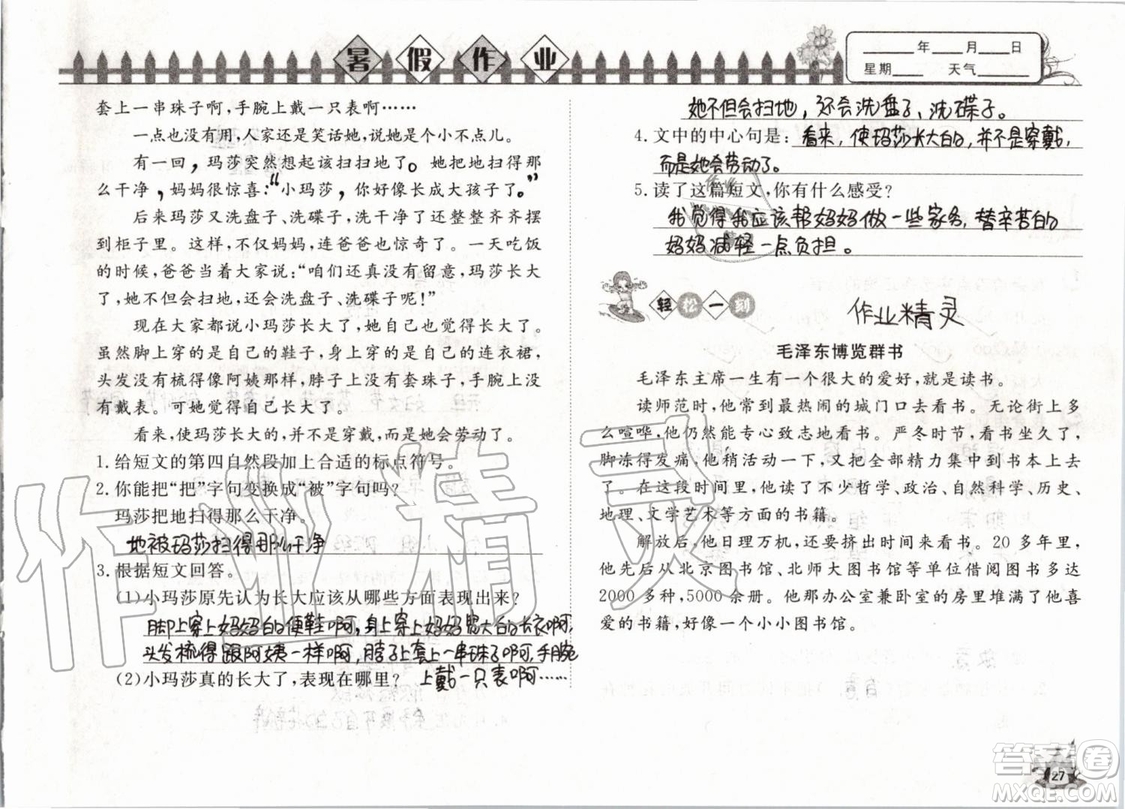 暑假作业
____年____月____日
星期____ 天气____
套上一串珠子啊，手腕上戴一只表啊……
一点也没有用，人家还是笑话她，说她是个小不点儿。
有一回，玛莎突然想扫扫地了。她把地扫得那
么干净，妈妈很惊喜：“小玛莎，你好像长成大孩子了。
后来玛莎又洗盘子、洗碟子，洗干净了还整整齐齐摆
到柜子里。这样，不仅妈妈，连爸爸也惊奇了。一天吃饭
的时候，爸爸当着大家说：“咱们还真没有留意，玛莎长大
了，她不但会扫地，还会洗盘子、洗碟子呢！”
现在大家都说小玛莎长大了，她自己也感觉到了。
虽然脚上穿的是自己的鞋子，身上穿的是自己的连衣裙，
头发没有梳得像阿姨那样，脖子上没有套珠子，手腕上
没有戴表。可她觉得自己长大了。
看来，使玛莎长大的，并不是穿戴，而是她会劳动了。
1. 给短文的第四自然段加上合适的标点符号。
2. 你能把“把”字句变换成“被”字句吗？
玛莎把地扫得那么干净。
地被玛莎扫得那么干净
3. 根据短文回答。
(1)小玛莎原先认为长大应该从哪些方面表现出来？
脚上穿上妈妈的便鞋啊，身上穿上妈妈宽大的长衣啊，
头发梳得跟阿姨一样啊，脖子上套上一串珠子啊，手腕
(2)小玛莎真的长大了，表现在哪里？ 上戴一只表啊……
她不但会扫地，还会洗盘子、洗碟子。
4. 文中的中心句是：看来，使玛莎长大的，并不是穿戴，
而是她会劳动了。
5. 读了这篇短文，你有什么感受？
我觉得我应该帮妈妈做一些家务，替辛苦的
妈妈减轻一点负担。
轻松一刻
作业精灵
毛泽东博览群书
毛泽东主席一生有一个很大的爱好，就是读书。
读师范时，他常到最热闹的城门口去看书。无论街上多
么喧哗，他仍然能专心致志地看书。严冬时节，看书坐久了，
脚冻得发痛，他稍活动一下，又把全部精力集中到书本上去
了。在这段时间里，他读了不少哲学、政治、自然科学、历史、
地理、文学艺术等方面的书籍。
解放后，他日理万机，还要挤出时间来看书。20 多年里，
他先后从北京图书馆、北师大图书馆等单位借阅图书多达
2000 多种，5000 余册。他那办公室兼卧室的房里堆满了他喜
爱的书籍，好像一个小小图书馆。
作业精灵
答案圈
MXQE.COM
27